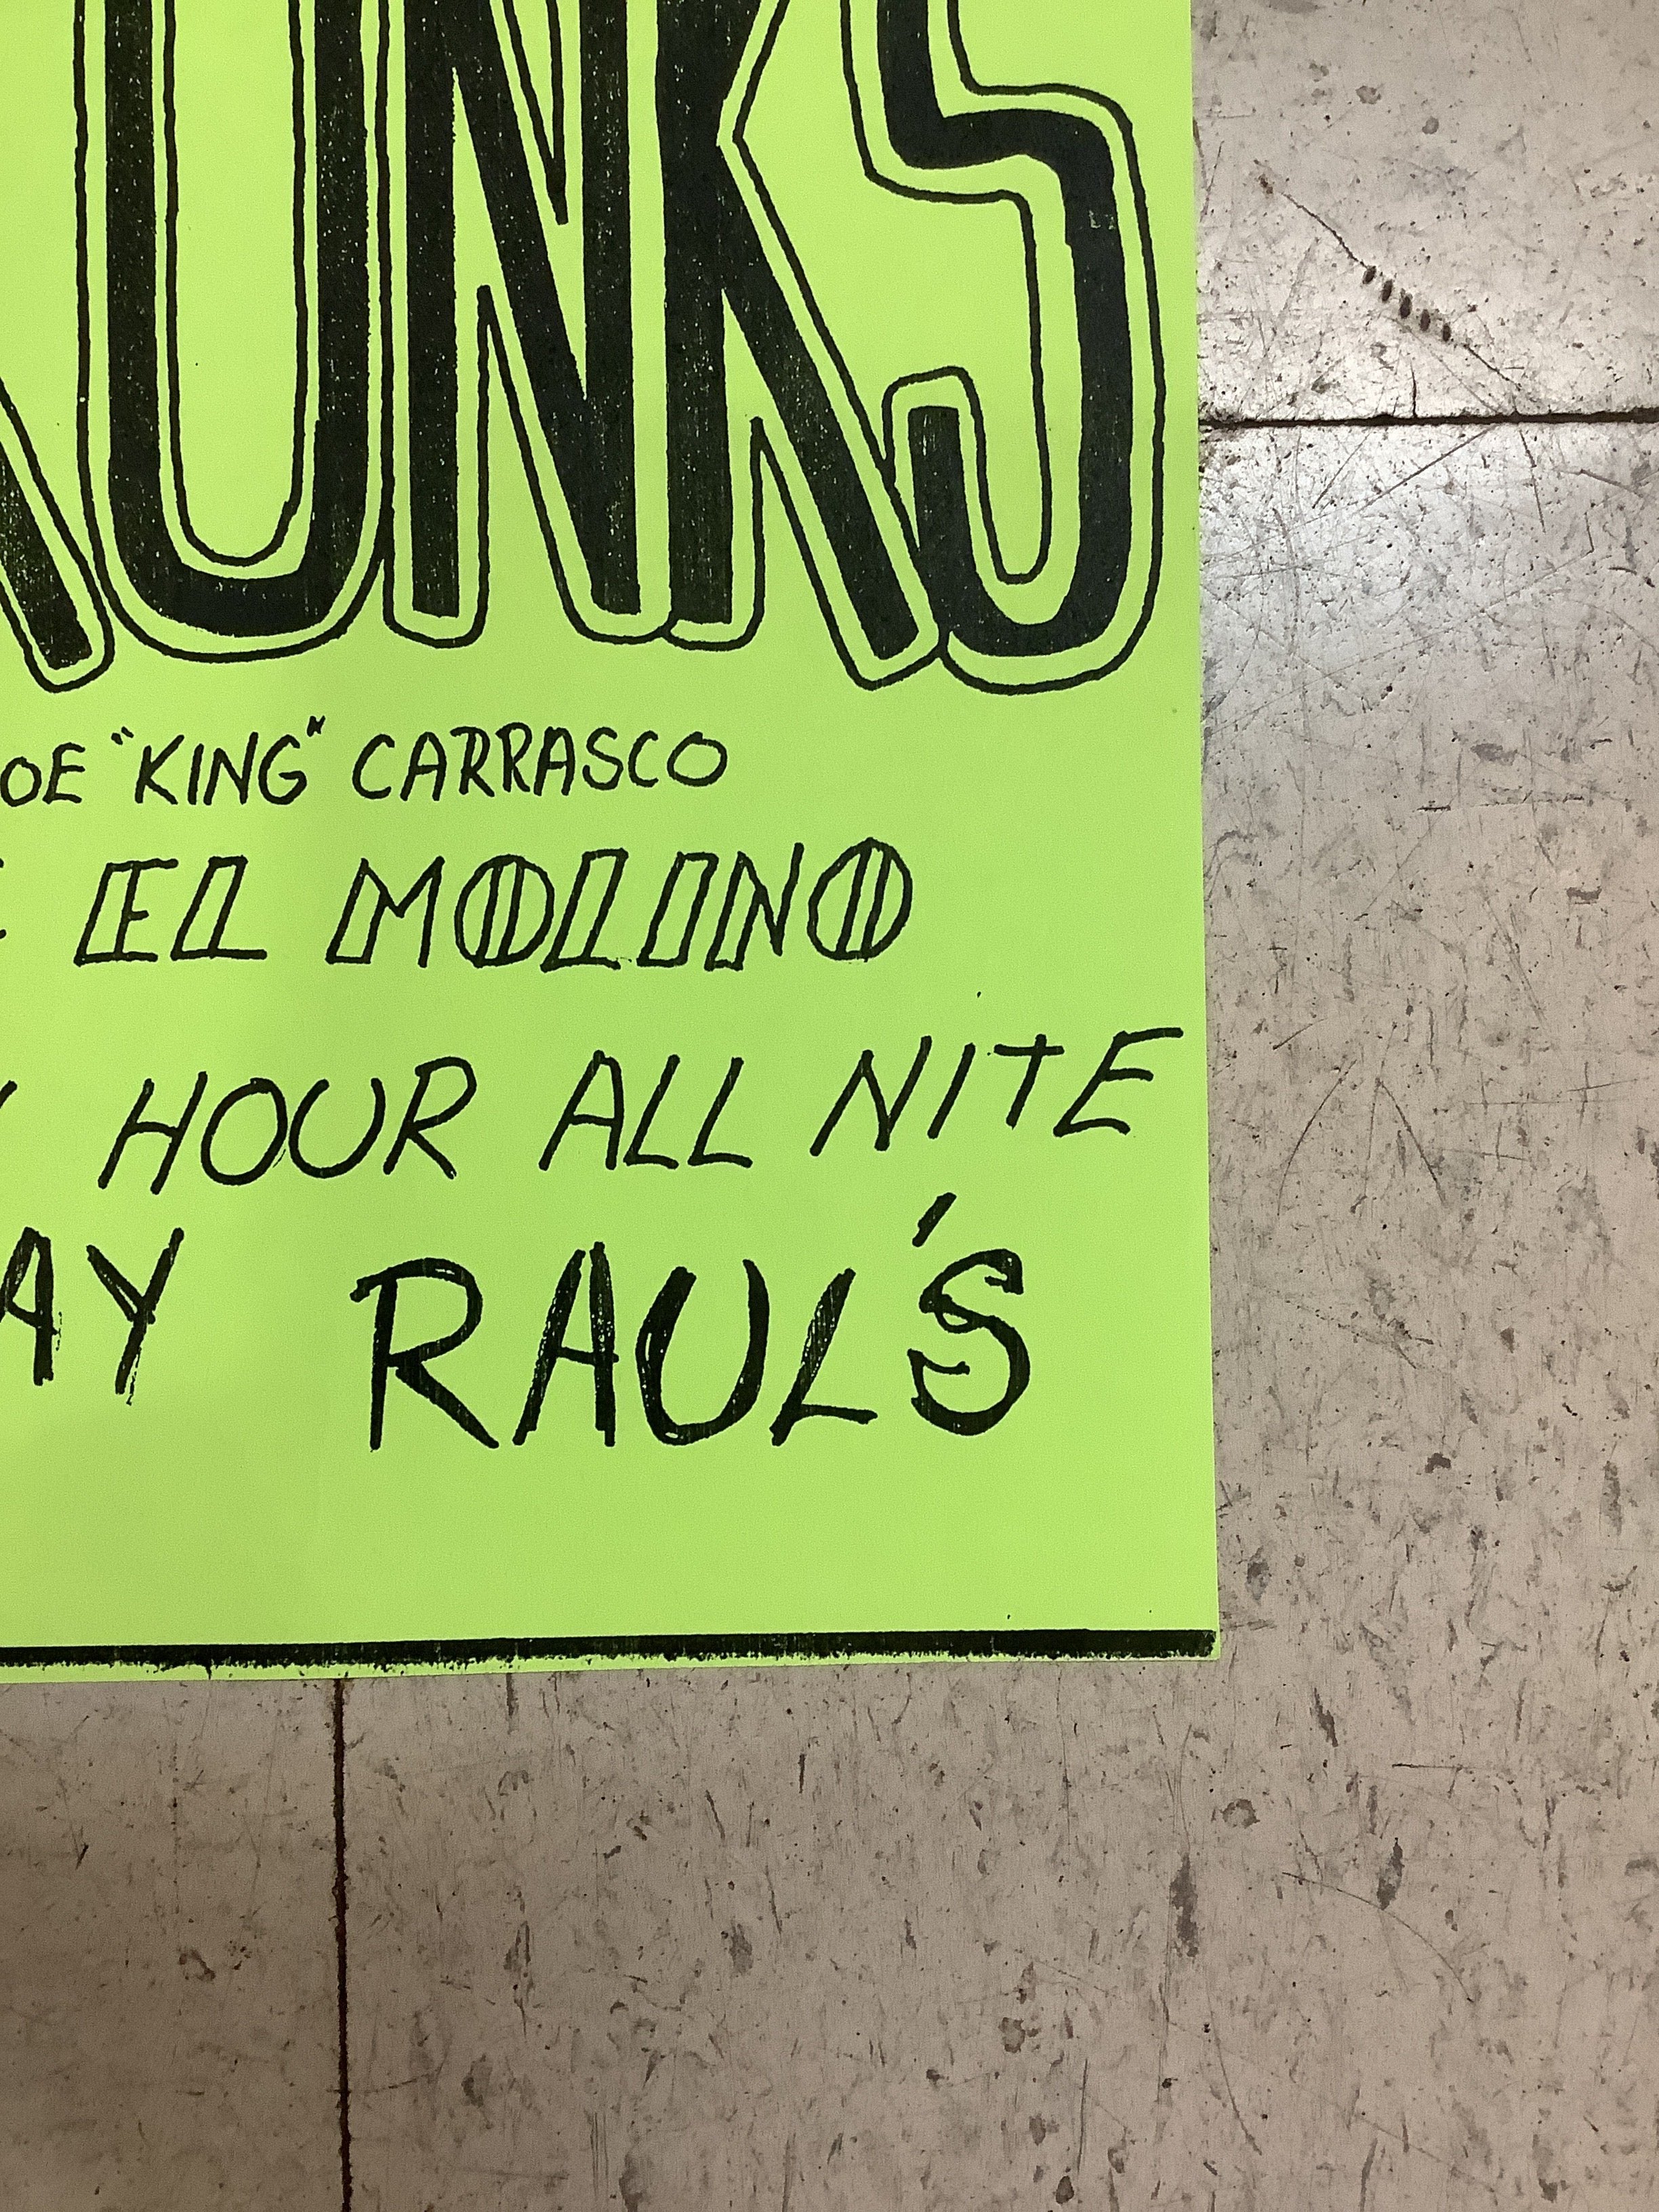 RUNKS
OE "KING" CARRASCO
EL MOLINO
HOUR ALL NITE
AY RAUL'S